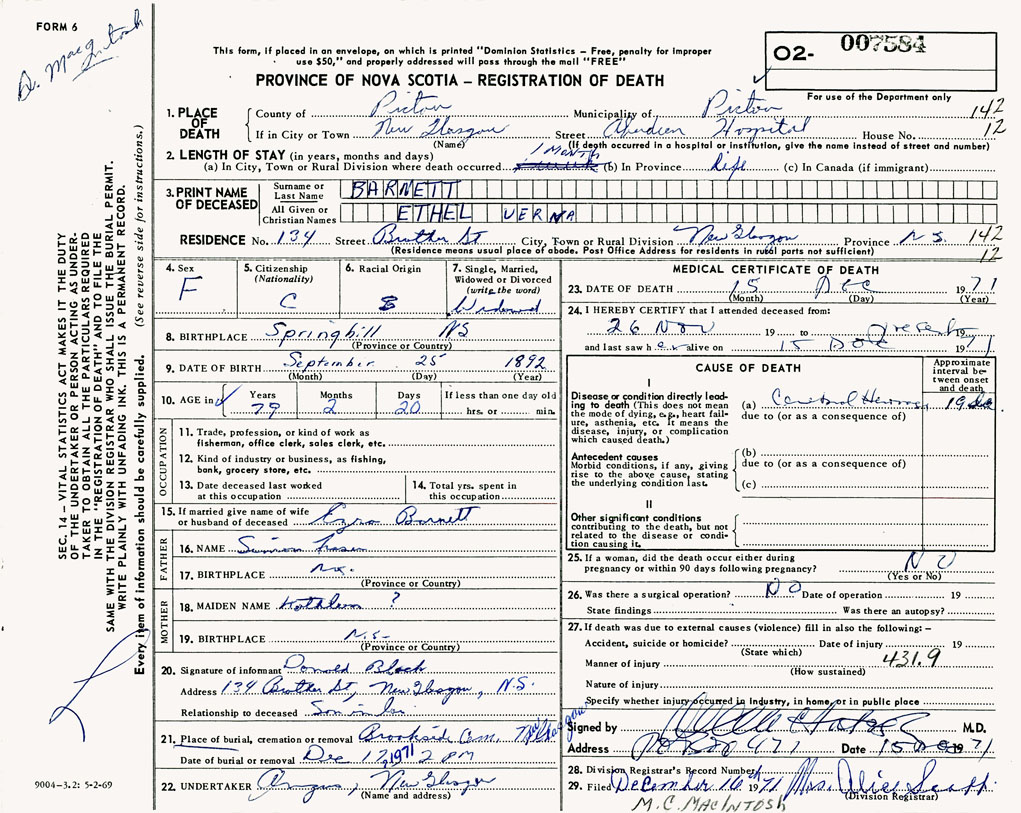 FORM 6
Dr. MacIntosh
This form, if placed in an envelope, on which is printed "Dominion Statistics – Free, penalty for improper
use $50," and properly addressed will pass through the mail "FREE"
O2- 007584
For use of the Department only
PROVINCE OF NOVA SCOTIA – REGISTRATION OF DEATH
1. PLACE OF DEATH
County of Pictou Municipality of Pictou 142
If in City or Town New Glasgow Street Aberdeen Hospital House No. 12
(Name) (If death occurred in a hospital or institution, give the name instead of street and number)
2. LENGTH OF STAY (in years, months and days)
(a) In City, Town or Rural Division where death occurred 1 Month (b) In Province Life (c) In Canada (if immigrant)
3. PRINT NAME OF DECEASED
Surname or Last Name BARNETT
All Given or Christian Names ETHEL VERNA
RESIDENCE No. 134 Street City, Town or Rural Division New Glasgow Province N.S. 142
(Residence means usual place of abode. Post Office Address for residents in rural parts not sufficient) 12
4. Sex F
5. Citizenship (Nationality) C
6. Racial Origin
7. Single, Married, Widowed or Divorced (write the word) Widowed
8. BIRTHPLACE Springhill NS
(Province or Country)
9. DATE OF BIRTH September 25 1892
(Month) (Day) (Year)
10. AGE in Years 79 Months 2 Days 20 If less than one day old hrs. or min.
OCCUPATION
11. Trade, profession, or kind of work as
fisherman, office clerk, sales clerk, etc.
12. Kind of industry or business, as fishing,
bank, grocery store, etc.
13. Date deceased last worked
at this occupation
14. Total yrs. spent in
this occupation
15. If married give name of wife
or husband of deceased Ezra Barnett
FATHER
16. NAME Simon Fraser
17. BIRTHPLACE N.S.
(Province or Country)
MOTHER
18. MAIDEN NAME Kathleen ?
19. BIRTHPLACE N.S.
(Province or Country)
20. Signature of informant Donald Black
Address 134 St, New Glasgow, N.S.
Relationship to deceased Son in law
21. Place of burial, cremation or removal Brookside Cem. New Glasgow
Date of burial or removal Dec 17, 1971 2 PM
22. UNDERTAKER Angus, New Glasgow
(Name and address)
MEDICAL CERTIFICATE OF DEATH
23. DATE OF DEATH 15 Dec 1971
(Month) (Day) (Year)
24. I HEREBY CERTIFY that I attended deceased from:
26 Nov 19 to present 19
and last saw her alive on 15 Dec 1971
CAUSE OF DEATH
Approximate interval between onset and death
I
Disease or condition directly leading to death (This does not mean the mode of dying, e.g., heart failure, asthenia, etc. It means the disease, injury, or complication which caused death.)
(a) Cerebral 19
due to (or as a consequence of)
Antecedent causes
Morbid conditions, if any, giving rise to the above cause, stating the underlying condition last.
(b)
due to (or as a consequence of)
(c)
II
Other significant conditions
contributing to the death, but not related to the disease or condition causing it.
25. If a woman, did the death occur either during
pregnancy or within 90 days following pregnancy? NO
(Yes or No)
26. Was there a surgical operation? NO Date of operation 19
State findings Was there an autopsy?
27. If death was due to external causes (violence) fill in also the following: –
Accident, suicide or homicide? Date of injury 19
(State which)
Manner of injury 431.9
(How sustained)
Nature of injury
Specify whether injury occurred in industry, in home, or in public place
Signed by M.D.
Address PO Box 477 Date 15 Dec 1971
28. Division Registrar's Record Number
29. Filed December 16 1971 Mrs. Alice Scott
(Division Registrar)
M.C. MACINTOSH
SEC. 14 – VITAL STATISTICS ACT MAKES IT THE DUTY
OF THE UNDERTAKER OR PERSON ACTING AS UNDER-
TAKER TO OBTAIN ALL THE PARTICULARS REQUIRED
IN THE "REGISTRATION OF DEATH" AND TO FILE THE
SAME WITH THE DIVISION REGISTRAR WHO SHALL ISSUE THE BURIAL PERMIT.
WRITE PLAINLY WITH UNFADING INK. THIS IS A PERMANENT RECORD.
Every item of information should be carefully supplied. (See reverse side for instructions.)
9004-3.2: 5-2-69